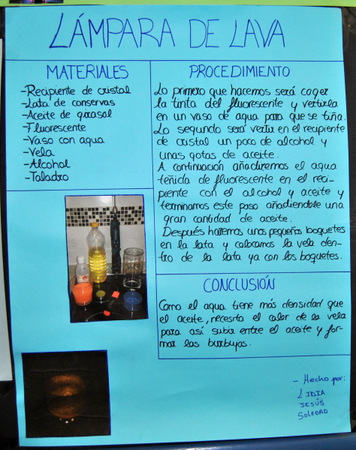 LÁMPARA DE LAVA
MATERIALES
-Recipiente de cristal
-Lata de conservas
-Aceite de girasol
-Fluorescente
-Vaso con agua
-Vela
-Alcohol
-Taladro
PROCEDIMIENTO
Lo primero que haremos será coger
la tinta del fluorescente y verterla
en un vaso de agua para que se tiña.
Lo segundo será verter en el recipiente
de cristal un poco de alcohol y
unas gotas de aceite.
A continuación añadiremos el agua
teñida de fluorescente en el reci-
piente con el alcohol y aceite y
terminamos este paso añadiendole una
gran cantidad de aceite.
Después haremos unos pequeños boquetes
en la lata y colocamos la vela den-
tro de la lata ya con los boquetes.
CONCLUSIÓN
Como el agua tiene más densidad que
el aceite, necesita el calor de la vela
para así subir entre el aceite y for-
mar las burbujas.
- Hecho por:
LIDIA
JESÚS
SOLEDAD